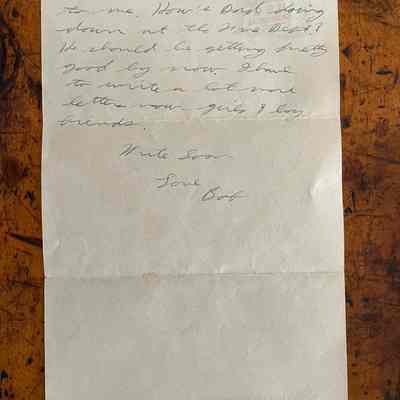 to me. How's Dad doing
down at the Fire Dept?
He should be getting pretty
good by now. I have
to write a lot more
letters now girls & boy
friends.
Write Soon
Love
Bob